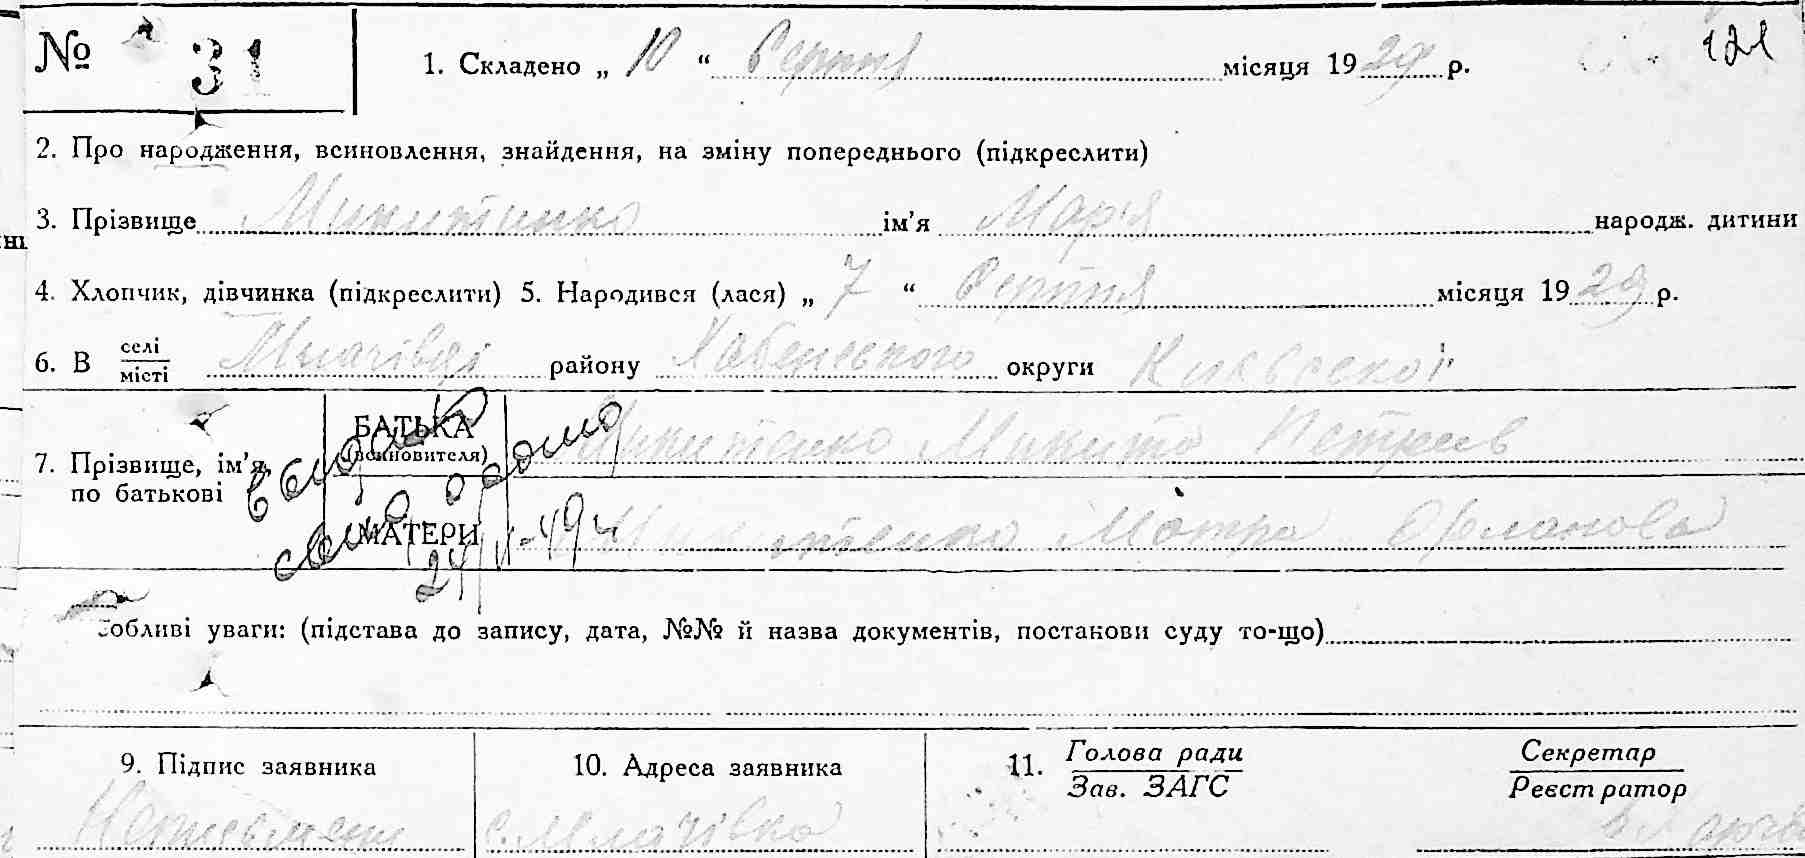 № 31
1. Складено „ 10 “ Серпня місяця 1929 р.
121
2. Про народження, всиновлення, знайдення, на зміну попереднього (підкреслити)
3. Прізвище Микитенко ім’я Марія народж. дитини
4. Хлопчик, дівчинка (підкреслити) 5. Народився (лася) „ 7 “ Серпня місяця 1929 р.
6. В селі/місті Млачівці району Хабенського округи Київсекої
7. Прізвище, ім’я, по батькові
БАТЬКА (всиновителя) Микитенко Микита Петрив
МАТЕРИ Микитенко Мотра
24/II-49
обливі уваги: (підстава до запису, дата, №№ й назва документів, постанови суду то-що)
9. Підпис заявника
10. Адреса заявника
11. Голова ради/Зав. ЗАГС
Секретар/Реєстратор
Неписьмени
с. Млачівка